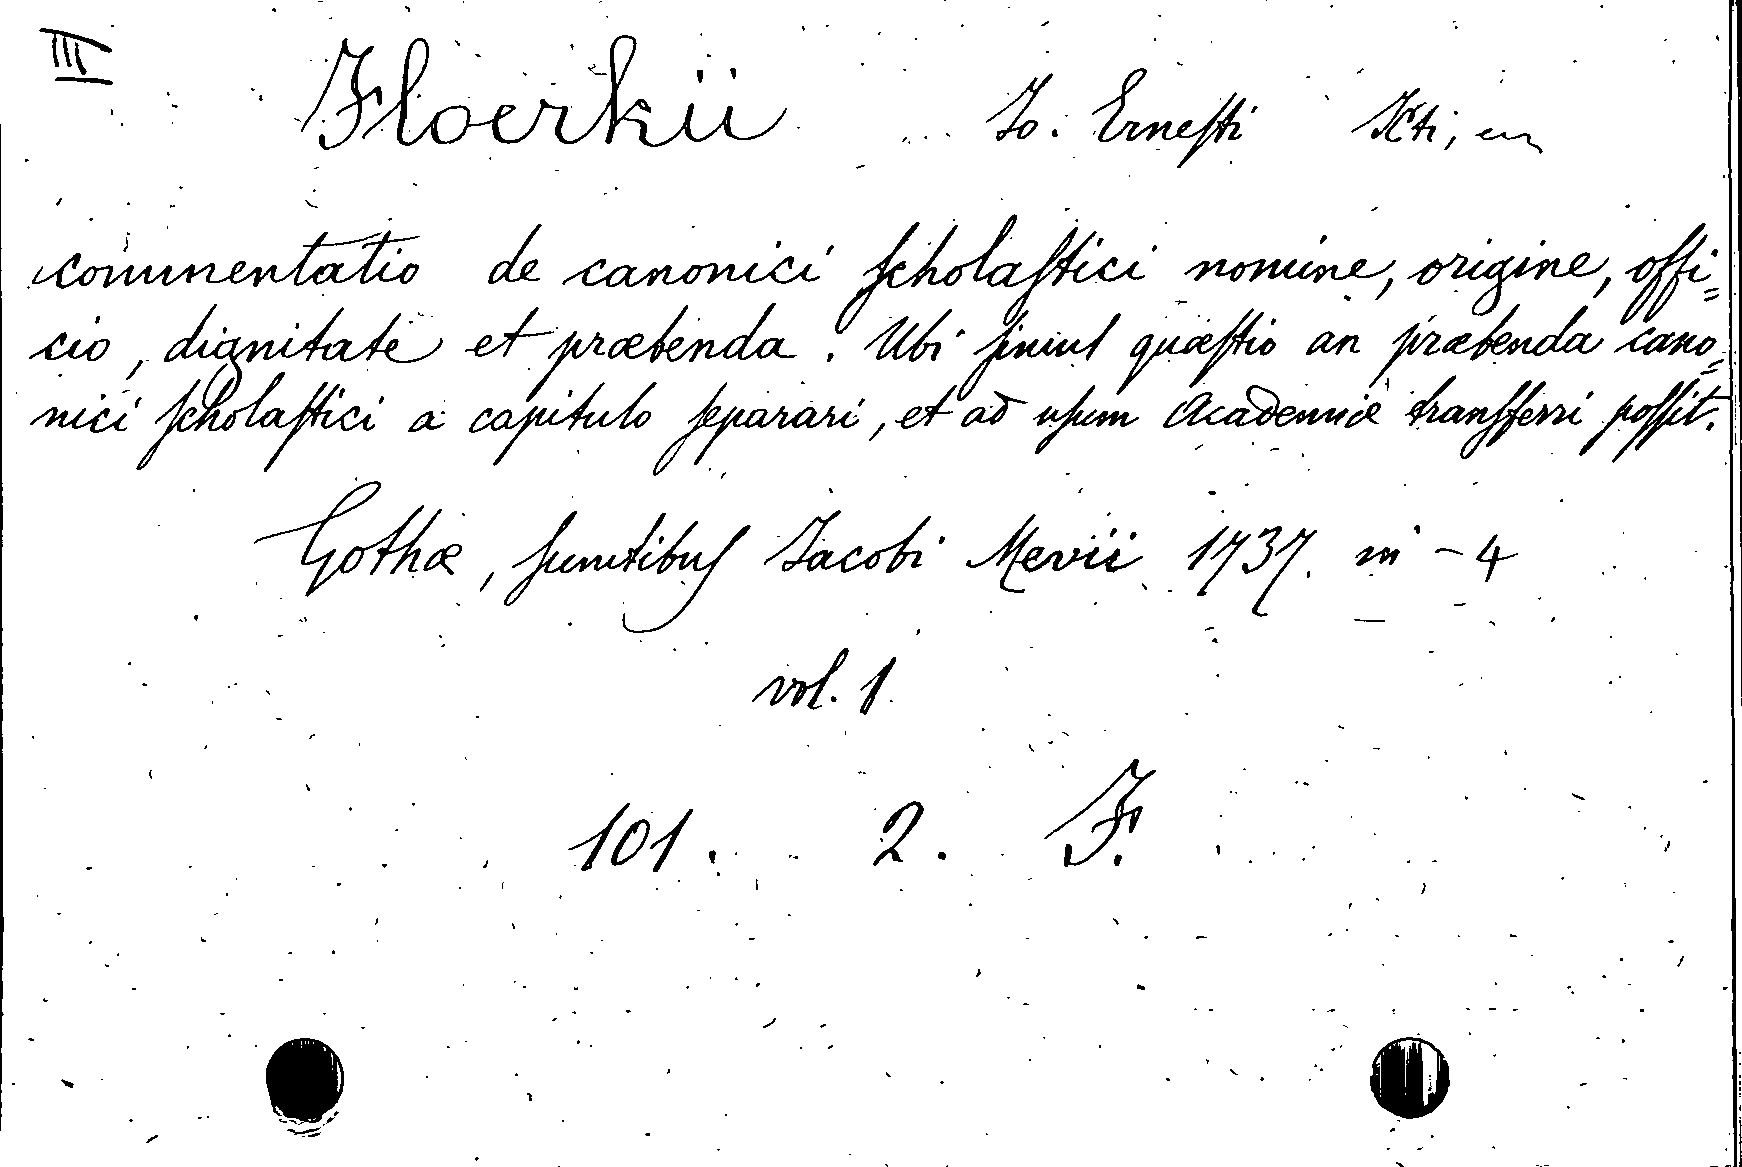 III
Floerkii Jo. Ernesti JCti,
commentatio de canonici scholastici nomine, origine, offi=
cio, dignitate et præbenda. Ubi simul quæstio an præbenda cano=
nici scholastici a capitulo separari, et ad usum Academiæ transferri possit.
Gothæ, sumtibus Jacobi Mevii 1737. in - 4
vol. 1
101. 2. F.